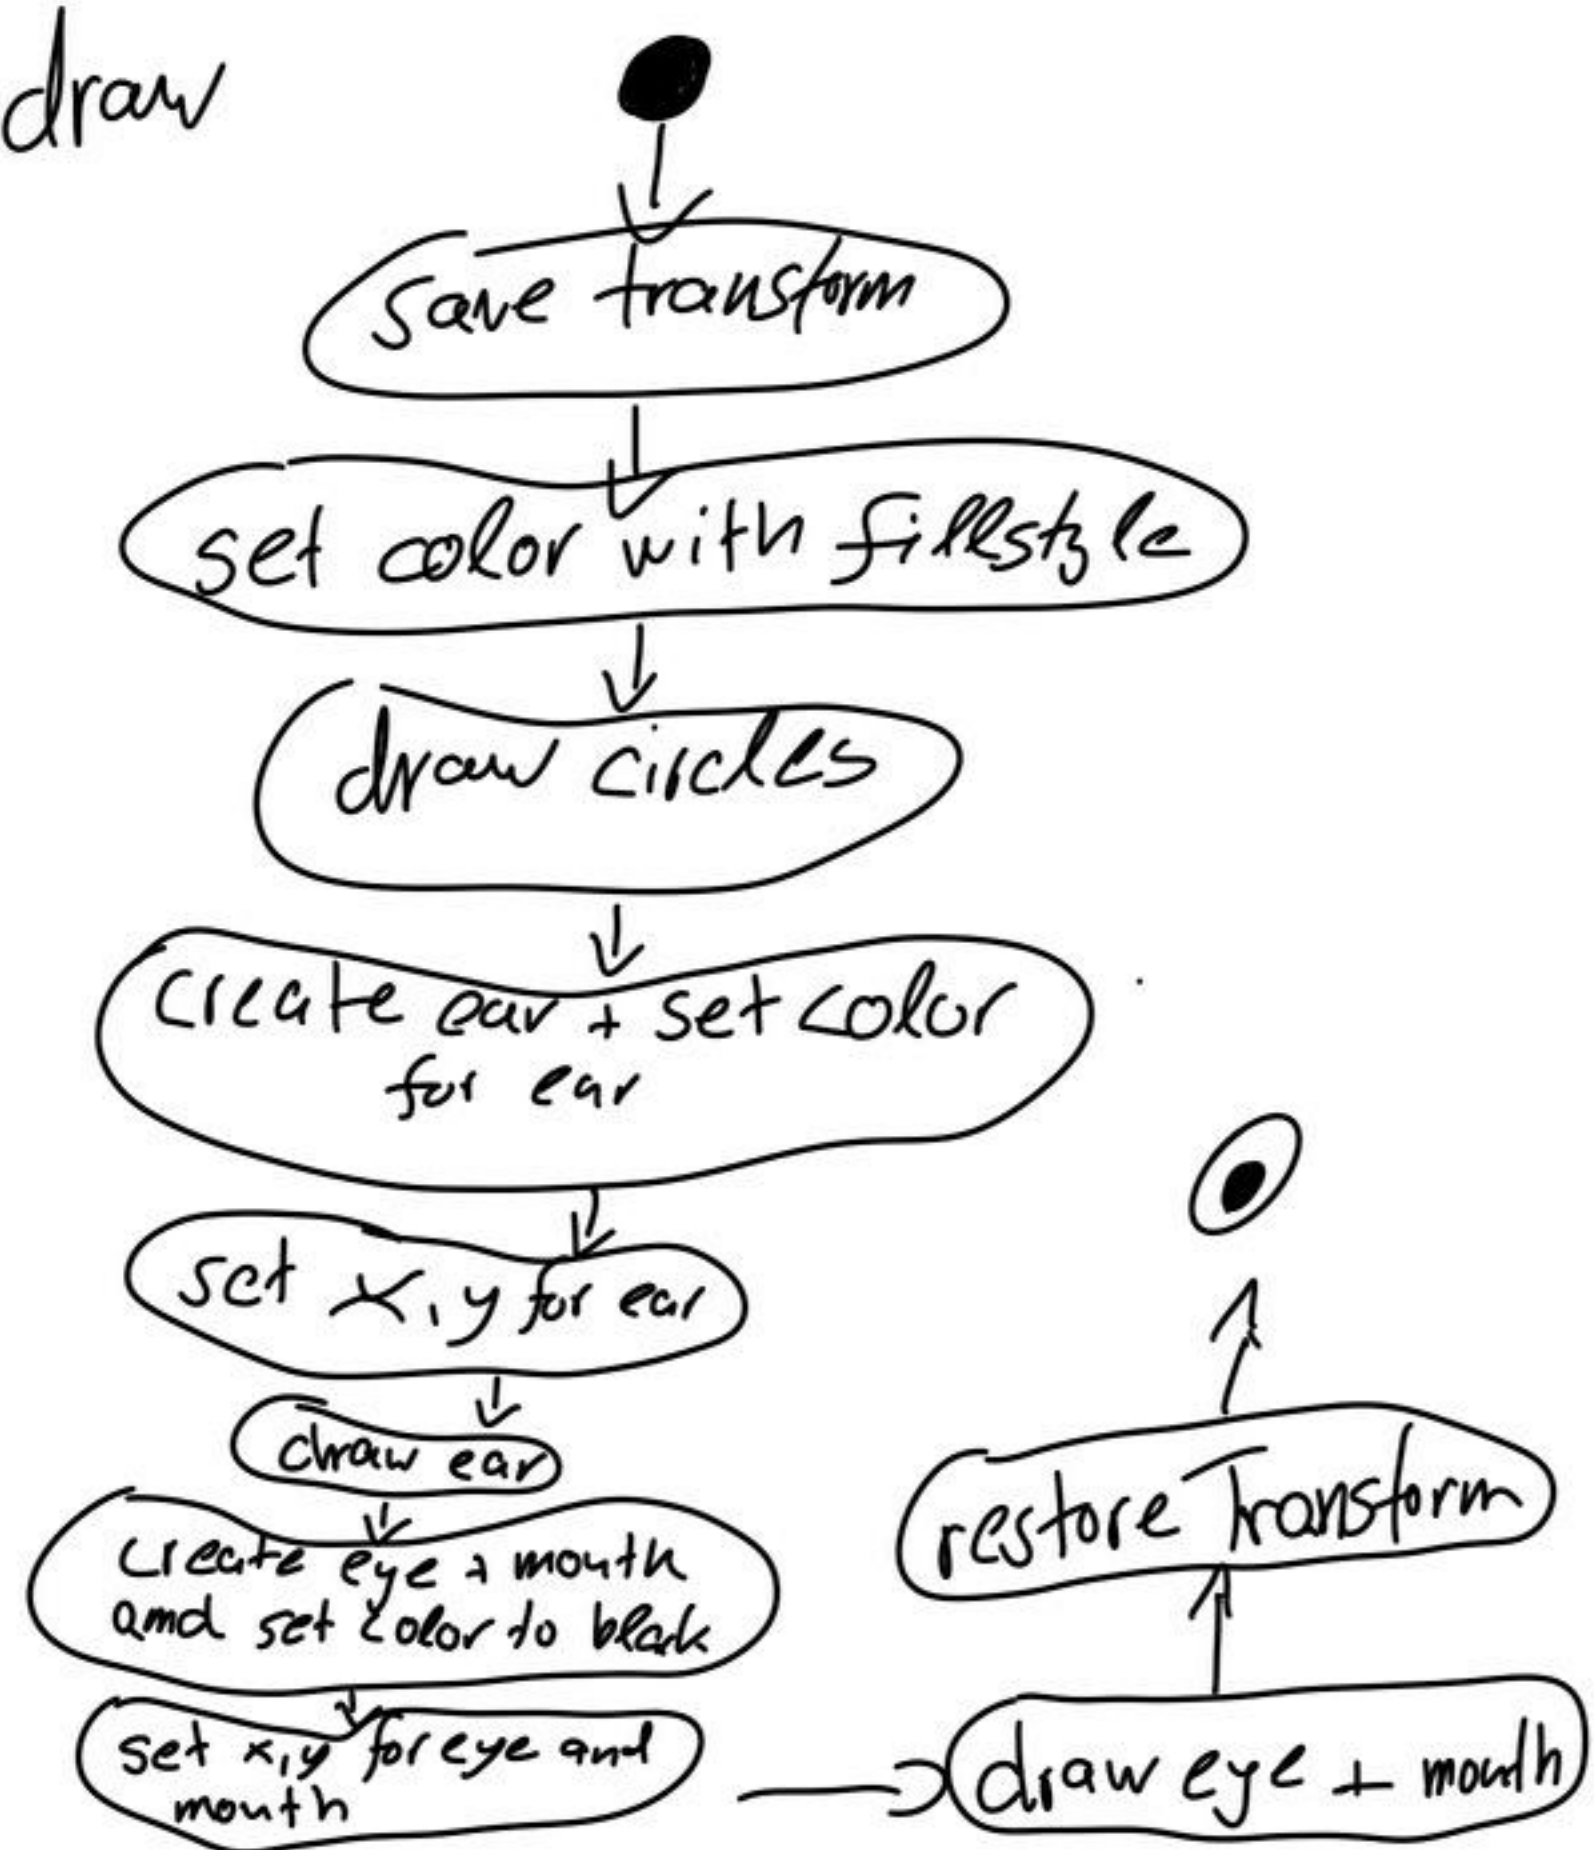 draw
save transform
set color with fillstyle
draw circles
create ear + set color
for ear
set x,y for ear
draw ear
create eye + mouth
and set color to black
set x,y for eye and
mouth
draw eye + mouth
restore Transform